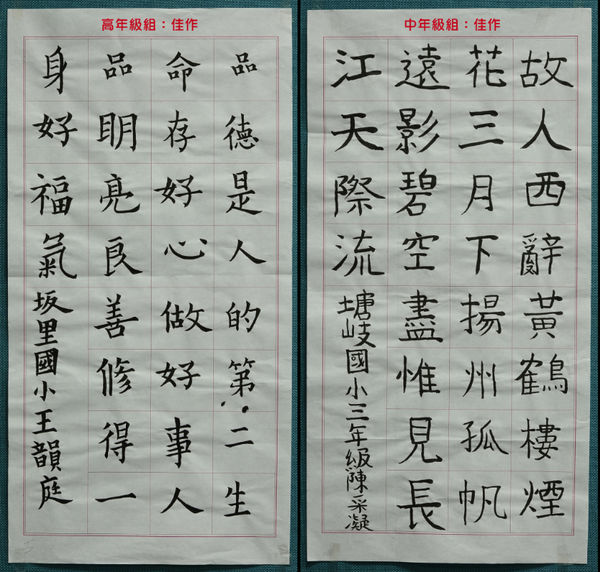 高年級組：佳作
品德是人的第二生
命存好心做好事人
品眀亮良善修得一
身好福氣 坂里國小王韻庭
中年級組：佳作
故人西辭黃鶴樓煙
花三月下揚州孤帆
遠影碧空盡惟見長
江天際流 塘岐國小三年級陳采凝